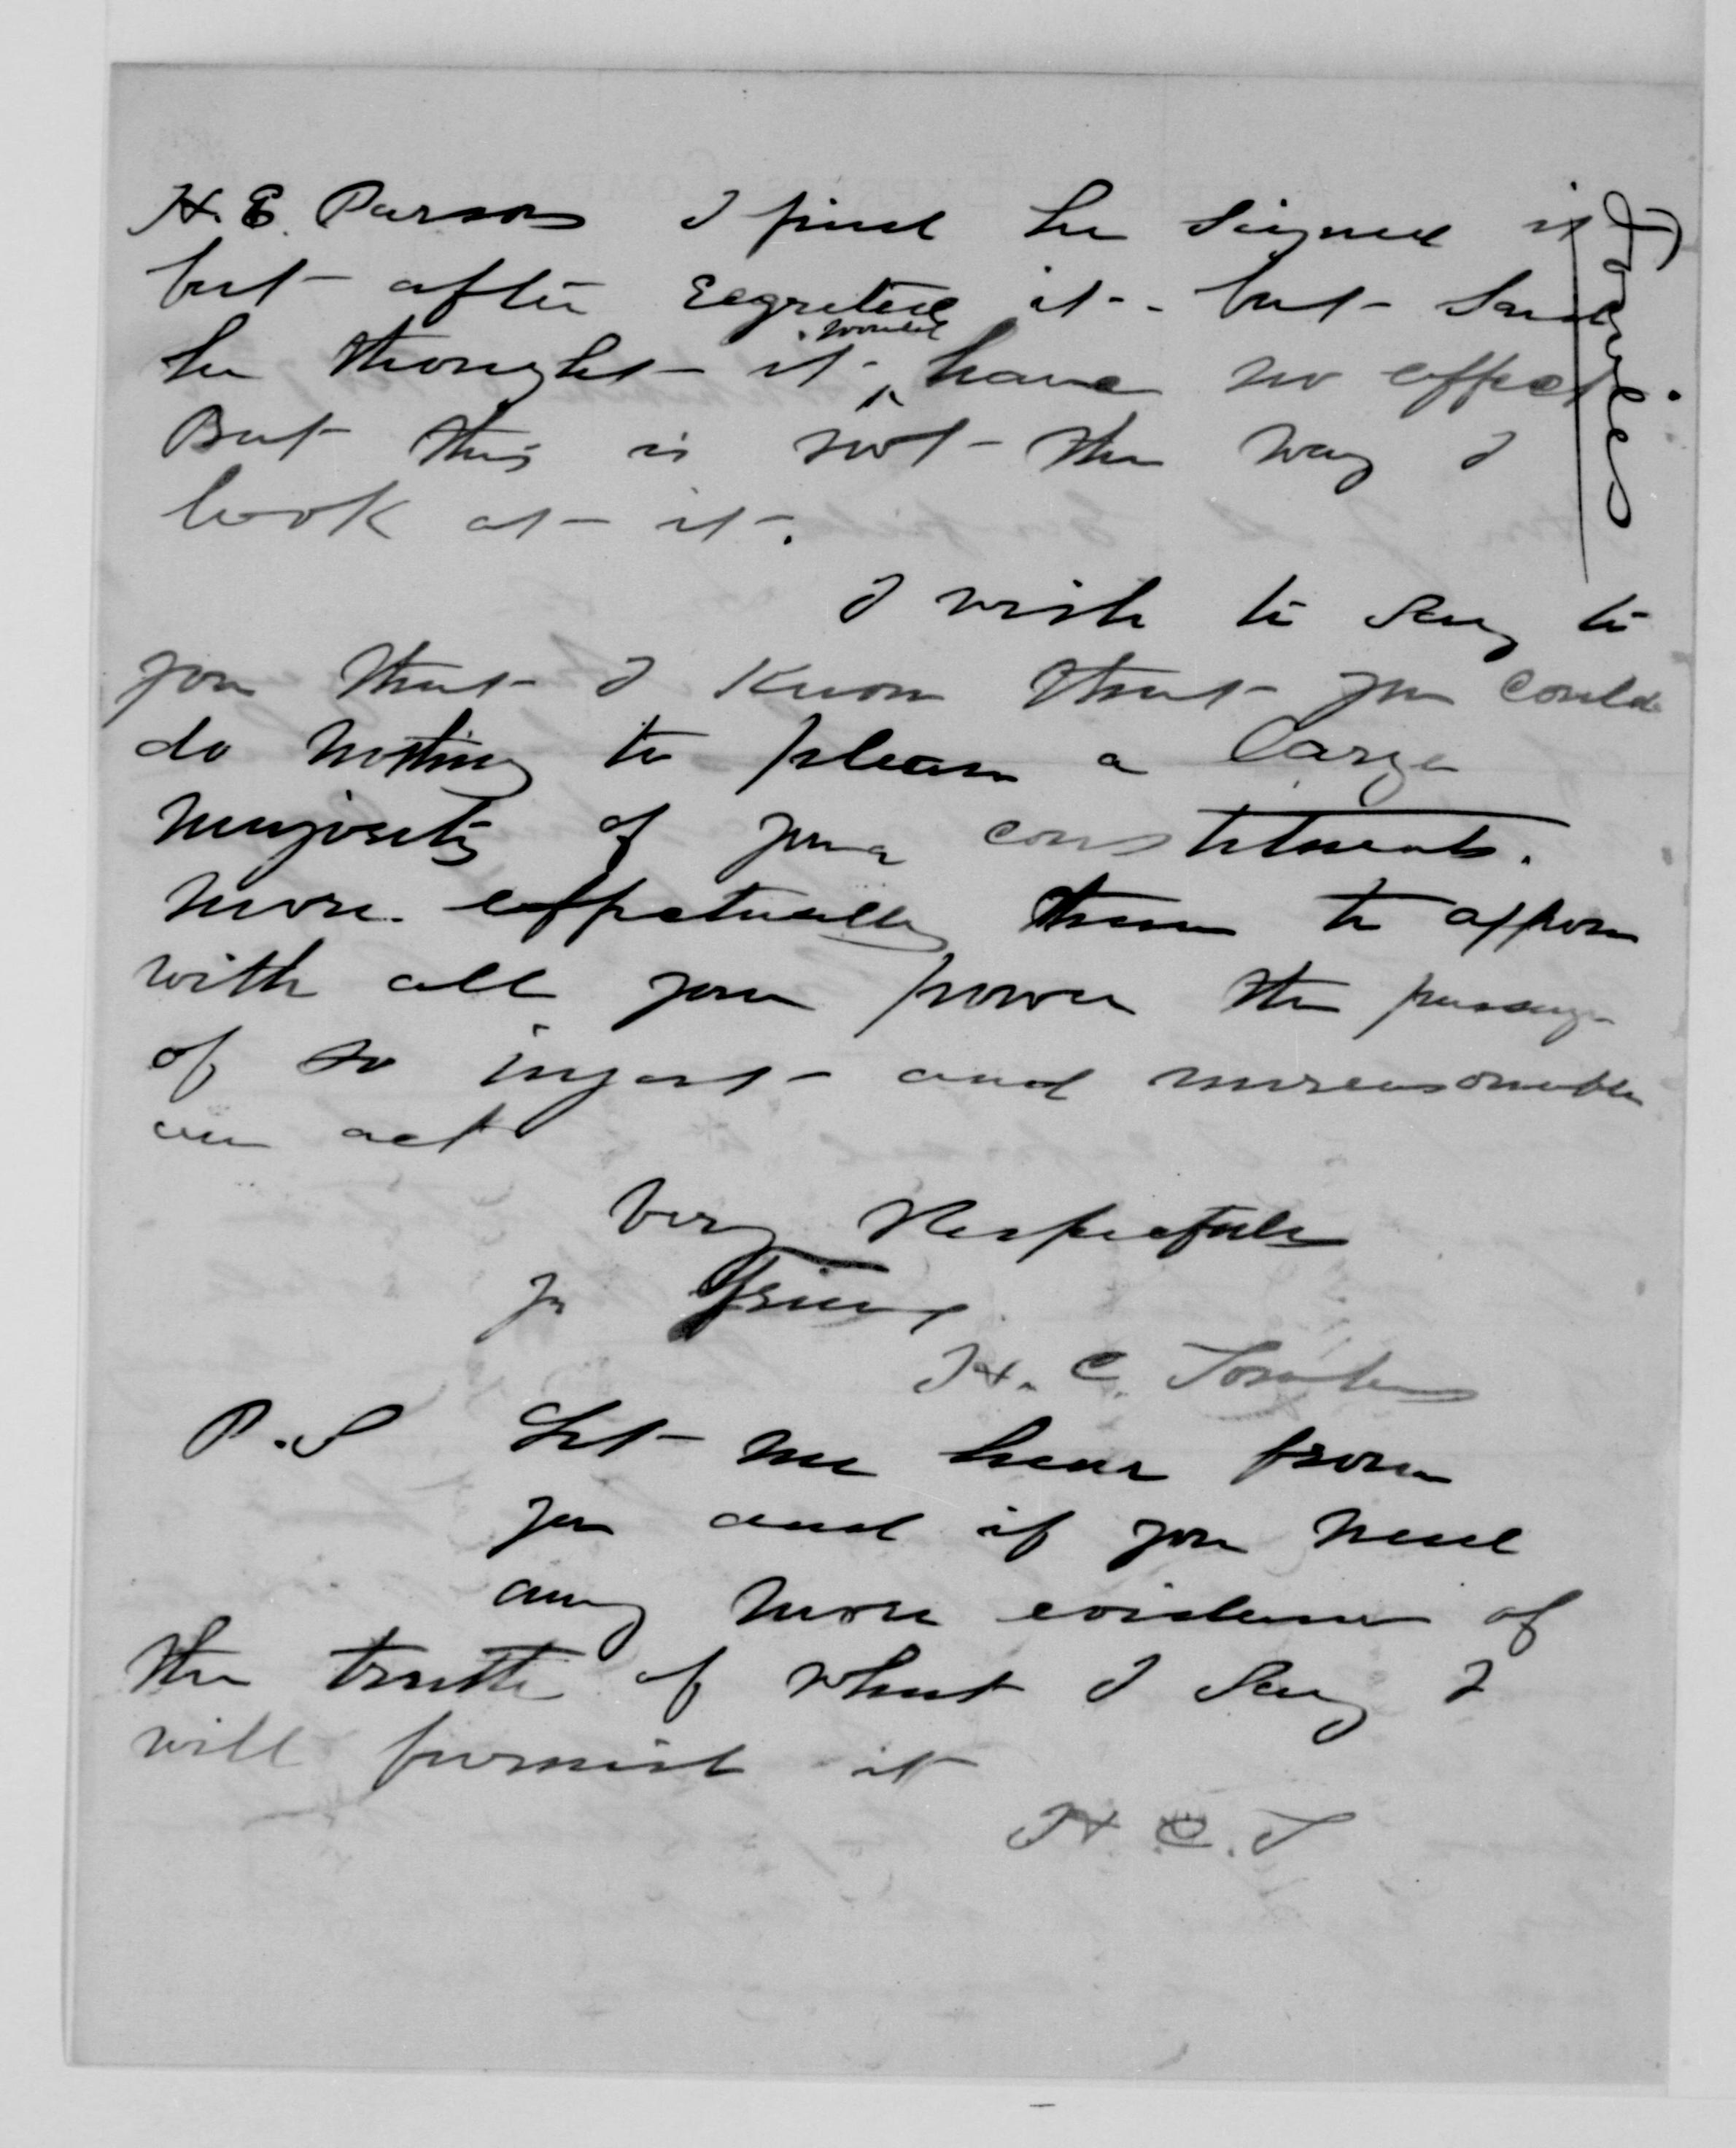 H. E. Parsons I find he signed it
but after regretted it - but said
he thought it would have no effect
But this is not the way I
look at it.
I wish to say to
you that I know that you could
do nothing to please a large
majority of your constituents.
more effectually than to oppose
with all your power the passage
of so injust and unreasonable
an act
Very Respectfully
yr Friend
H. C.
P.S Let me hear from
you and if you need
any more evidence of
the truth of what I say I
will furnish it
H. C. T